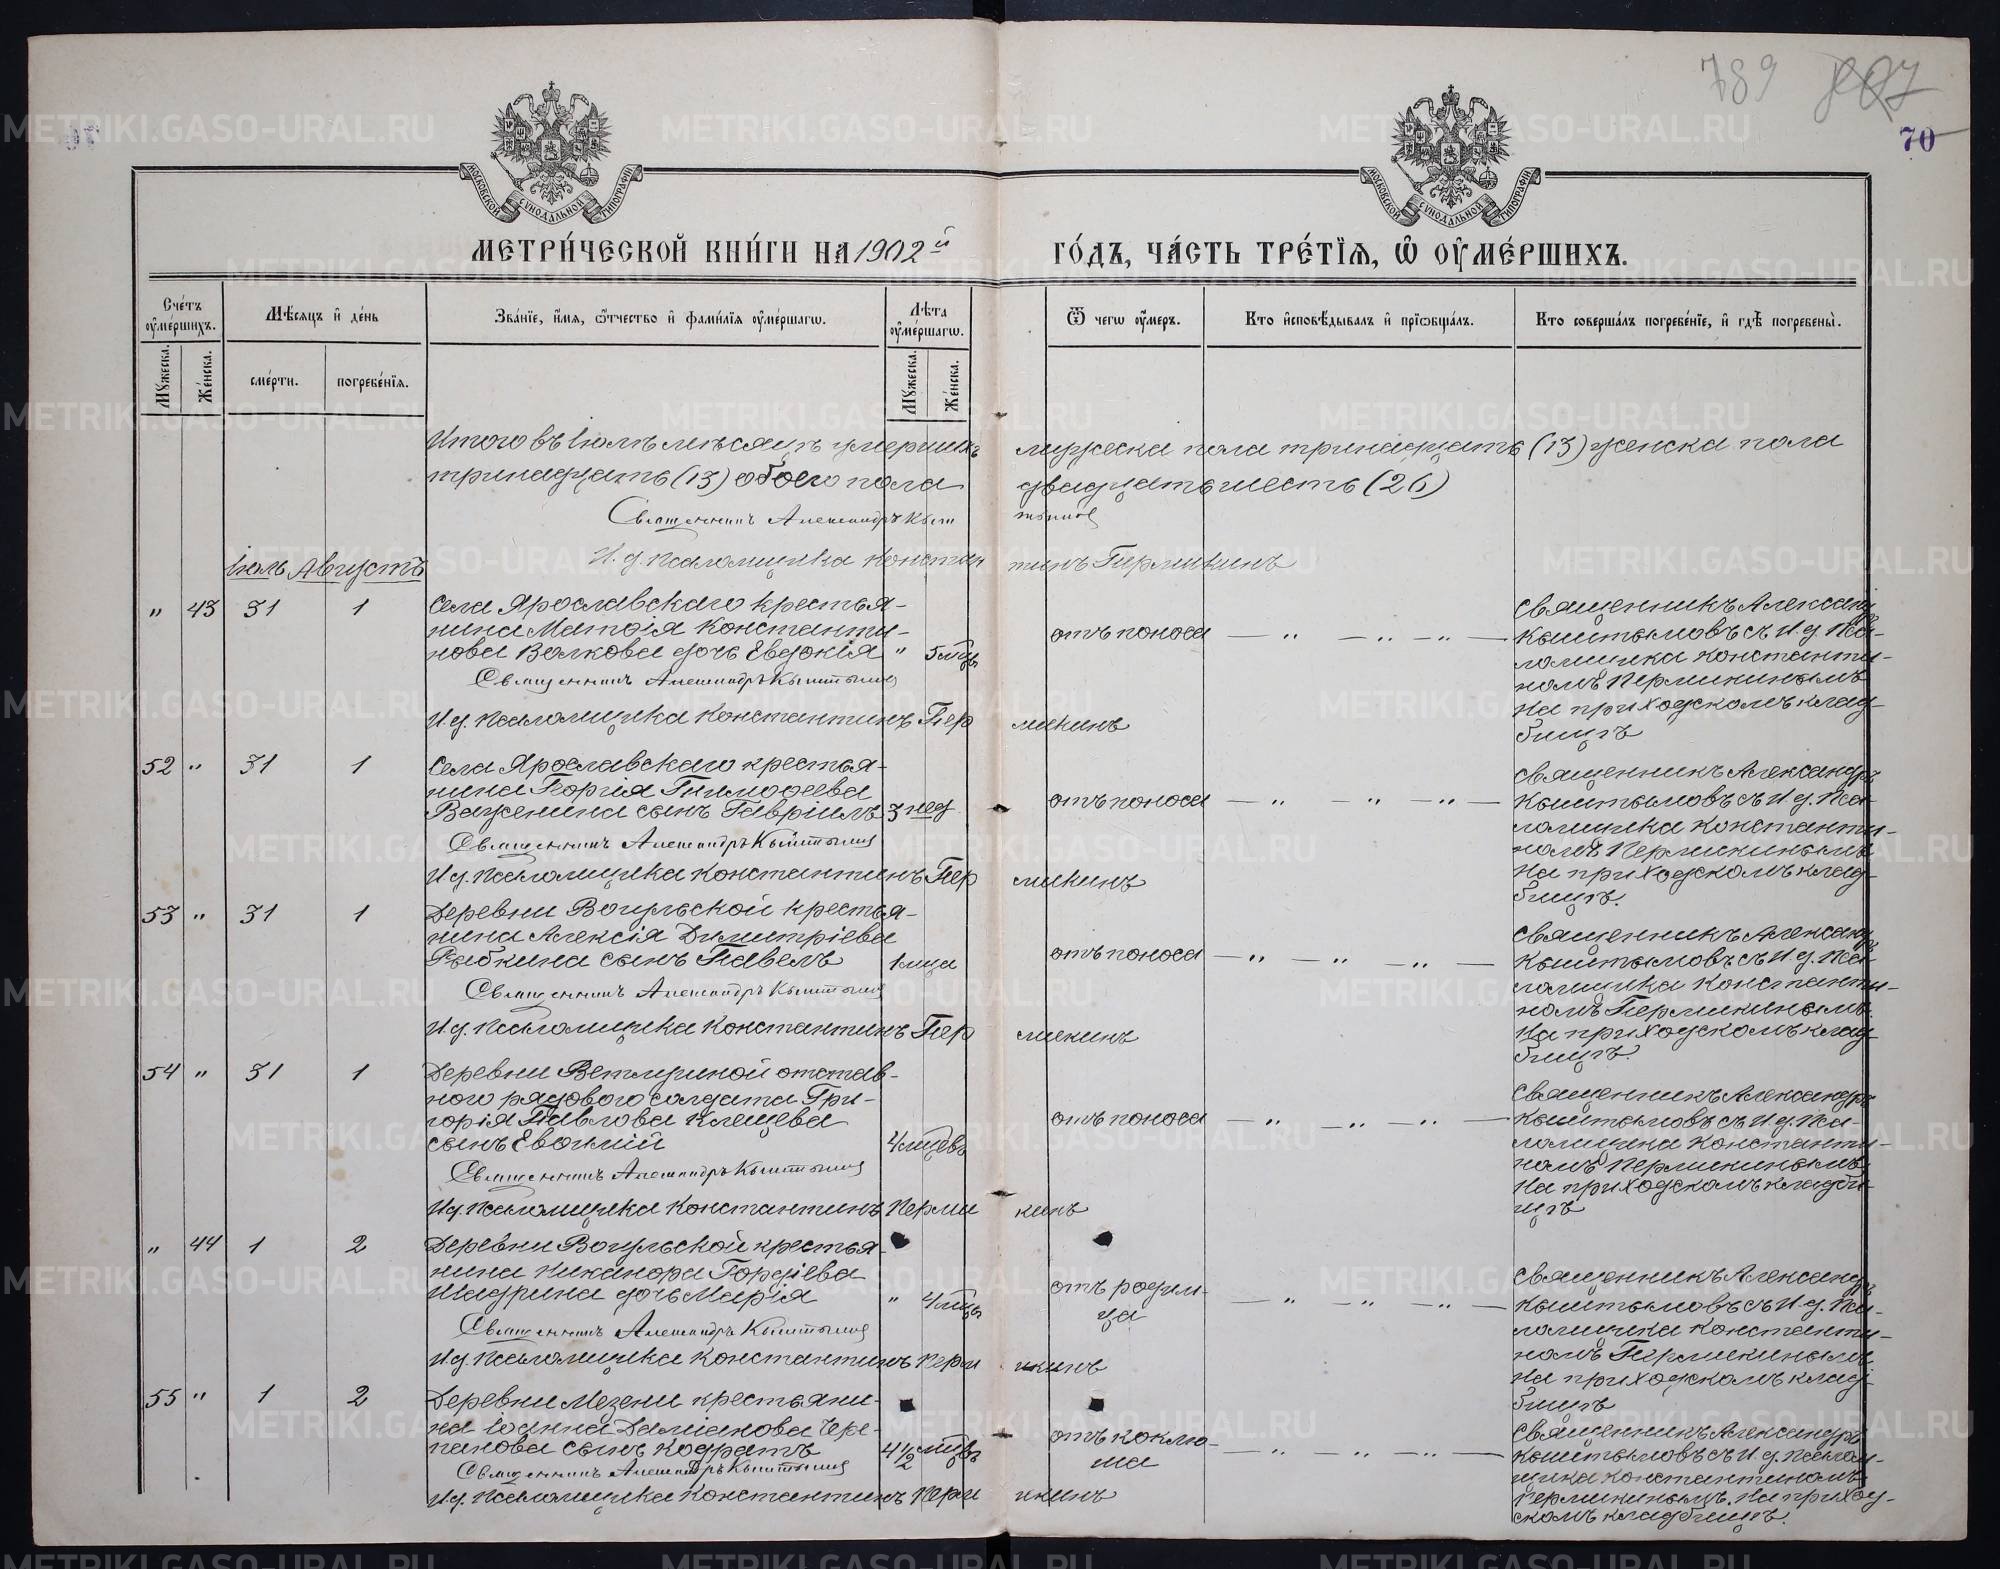 789
70
МОСКОВСКОЙ СѴНОДАЛЬНОЙ ТИПОГРАФІИ
МОСКОВСКОЙ СѴНОДАЛЬНОЙ ТИПОГРАФІИ
МЕТРИ́ЧЕСКОЙ КНИ́ГИ НА 1902й ГО́ДЪ, ЧА́СТЬ ТРЕ́ТЇѦ, Ѽ ОУ҆МЕ́РШИХЪ.
Сче́тъ оу҆ме́ршихъ.
Мꙋ́жеска.
Же́нска.
Мѣ́сѧцъ и҆ де́нь
сме́рти.
погребе́нїѧ.
Зва́нїе, и҆́мѧ, ѻ҆́тчество и҆ фами́лїѧ оу҆ме́ршагѡ.
Лѣ́та оу҆ме́ршагѡ.
Мꙋ́жеска.
Же́нска.
Ѿ чегѡ̀ оу҆́меръ.
Кто̀ и҆сповѣ́дывалъ и҆ прїѡбща́лъ.
Кто̀ соверша́лъ погребе́нїе, и҆ гдѣ̀ погребены̀.
Итого въ Іюлѣ мѣсяцѣ умершихъ мужеска пола тринадцать (13) женска пола
тринадцать (13) обоего пола двадцать шесть (26)
Священникъ Александръ Кыштымов
И.д. псаломщика Константинъ Пермикинъ
Іюль Августъ
" 43 31 1
Села Ярославскаго крестья-
нина Матѳія Константи-
нова Волкова дочь Евдокія " 5 мѣц
отъ поноса — " — " — " —
Священникъ Александръ Кыштымов
И.д. псаломщика Константинъ Пермикинъ
Священникъ Александръ
Кыштымовъ съ И.д. Пса-
ломщика Константи-
номъ Пермикинымъ
На приходскомъ клад-
бищѣ
52 " 31 1
Села Ярославскаго крестья-
нина Георгія Тимоѳеева
Важенина сынъ Гавріилъ 3 нед
отъ поноса — " — " — " —
Священникъ Александръ Кыштымов
И.д. псаломщика Константинъ Пермикинъ
Священникъ Александръ
Кыштымовъ съ И.д. Пса-
ломщика Константи-
номъ Пермикинымъ
На приходскомъ клад-
бищѣ.
53 " 31 1
Деревни Вогульской крестья-
нина Алексія Димитріева
Рыбкина сынъ Павелъ 1 мца
отъ поноса — " — " — " —
Священникъ Александръ Кыштымов
И.д. псаломщика Константинъ Пермикинъ
Священникъ Александръ
Кыштымовъ съ И.д. Пса
ломщика Константи-
номъ Пермикинымъ.
На приходскомъ клад-
бищѣ.
54 " 31 1
Деревни Ветлуриной отстав-
ного рядового солдата Гри-
горія Павлова Клещева
сынъ Евѳимій 4 мцевъ
отъ поноса — " — " — " —
Священникъ Александръ Кыштымов
И.д. псаломщика Константинъ Пермикинъ
Священникъ Александръ
Кыштымовъ съ И.д. Пса-
ломщика Константи-
номъ Пермикинымъ
На приходскомъ кладби
щѣ
" 44 1 2
Деревни Вогульской крестья-
нина Никанора Гордіева
Шадрина дочь Марія " 4 мѣцы
отъ родим-
ца — " — " — " —
Священникъ Александръ Кыштымов
И.д. псаломщика Константинъ Пермикинъ
Священникъ Александръ
Кыштымовъ съ И.д. Пса-
ломщика Константи-
номъ Пермикинымъ
На приходскомъ клад
бищѣ
55 " 1 2
Деревни Мезени крестьяни-
на Іоанна Даміанова Чре-
панова сынъ Кодратъ 4 1/2 мѣцвъ
отъ коклю-
ша — " — " — " —
Священникъ Александръ Кыштымов
И.д. псаломщика Константинъ Пермикинъ
Священникъ Александръ
Кыштымовъ съ И.д. Псалом-
щика Константиномъ
Пермикинымъ. На приход-
скомъ кладбищѣ.
METRIKI.GASO-URAL.RU